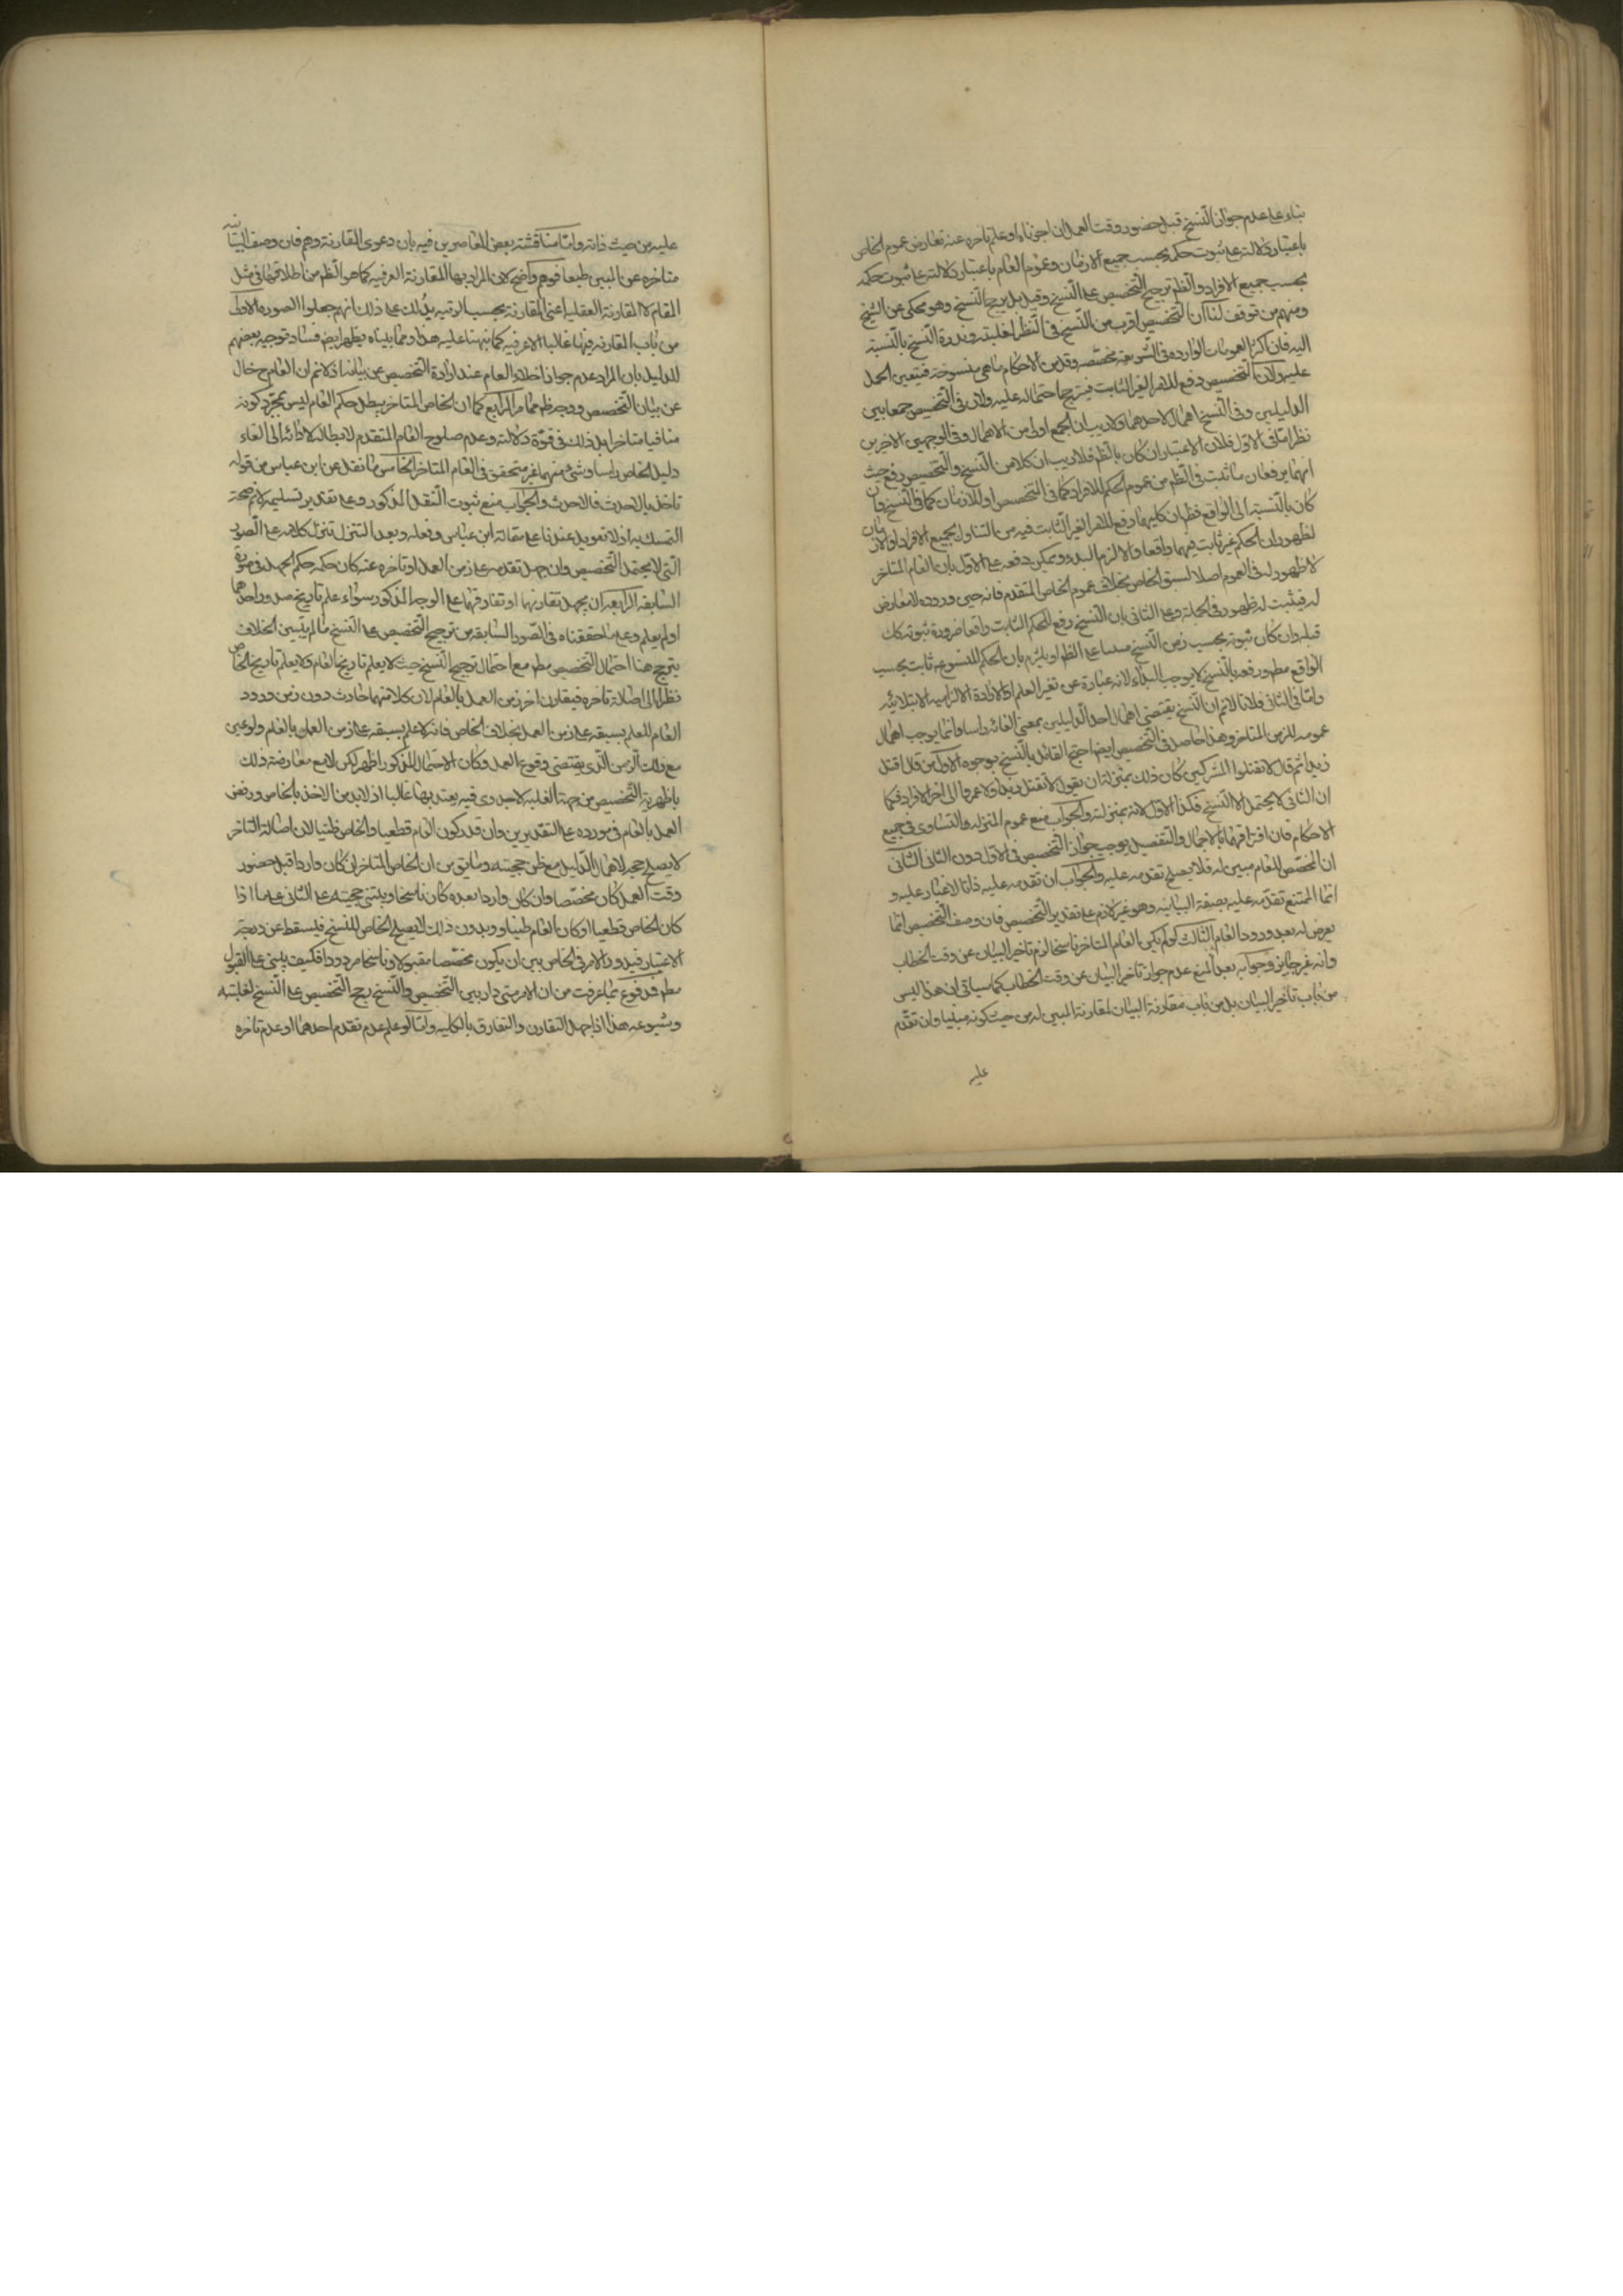 بناء على عدم جواز النسخ قبل حضور وقت العمل ان اجزناه او علم تاخره عنه تعارض عموم الخاص
باعتبار دلالته على ثبوت حكمه بحسب جميع الازمان وعموم العام باعتبار دلالته على ثبوت حكمه
بحسب جميع الافراد والظم ترجيح التخصيص على النسخ وقيل بل يرجح النسخ وهو محكى عن الشيخ
ومنهم من توقف لنا ان التخصيص اقرب من النسخ فى النظر لغلبته وندرة النسخ بالنسبة
اليه فان اكثر العمومات الواردة فى الشريعة مخصصه وقل من الاحكام ما هى منسوخة فيتعين الحمل
عليه ولان التخصيص دفع للاثر الغير الثابت فيترجح احتماله عليه ولان فى التخصيص جمعا بين
الدليلين وفى النسخ اهمال لاحدهما ولا ريب ان الجمع اولى من الاهمال وفى الوجهين الاخيرين
نظر امّا فى الاول فلان الاعتبار ان كان بالظم فلا ريب ان كلا من النسخ والتخصيص رفع حيث
انهما يرفعان ما ثبت فى الظم من عموم الحكم للافراد كما فى التخصيص او للازمان كما فى النسخ وان
كان بالنسبة الى الواقع فظم ان كليهما دفع للاثر الغير الثابت فيه من التناول لجميع الافراد او الازمان
لظهور ان الحكم غير ثابت فيهما واقعا والا لزم البداء ويمكن دفعه على الاول بان العام المتاخر
لا ظهور له فى العموم اصلا لسبق الخاص بخلاف عموم الخاص المتقدم فانه حين وروده لا معارض
له فيثبت له ظهور فى الجملة وعلى الثانى بان النسخ رفع للحكم الثابت واقعا ضرورة ثبوته كان
قبله وان كان ثبوته بحسب زمن النسخ على الظم او يلتزم بان الحكم المنسوخ ثابت بحسب
الواقع مطم ورفعه بالنسخ لا يوجب البداء لانه عبارة عن تغير العلم او الارادة الالزامية لا الابتلائيه
وامّا فى الثانى فلانا لا نم ان النسخ يقتضى اهمال احد الدليلين بمعنى الغائه راسا وانما يوجب اهمال
عمومه للزمن المتاخر وهذا حاصل فى التخصيص ايضا احتج القائل بالنسخ بوجوه الاول من قال اقتل
زيدا ثم قال لا تقتلوا المشركين كان ذلك بمنزلة ان يقول لا تقتل زيدا ولا عمروا الى اخر الافراد فكما
ان الثانى لا يحتمل الا النسخ فكذا الاول لانه بمنزلته والجواب منع عموم المنزله والتساوى فى جميع
الاحكام فان افتراقهما بالاجمال والتفصيل يوجب جواز التخصيص فى الاول دون الثانى الثانى
ان المخصص للعام مبين له فلا يصلح تقدمه عليه والجواب ان تقدمه عليه ذاتا لا غبار عليه و
انما الممتنع تقدمه عليه بصفة البيانيه وهو غير لازم على تقدير التخصيص فان وصف التخصيص انما
يعرض له بعد ورود العام الثالث لو لم يكن العام المتاخر ناسخا لزم تاخير البيان عن وقت الخطاب
وانه غير جايز وجوابه بعد المنع عدم جواز تاخير البيان عن وقت الخطاب كما سياتى ان هذا ليس
من باب تاخير البيان بل من باب مقارنة البيان لمقارنة المبين له من حيث كونه مبينا وان تقدم
عليه
عليه من حيث ذاته وامّا مناقشة بعض المعاصرين فيه بان دعوى المقارنة وهم فان وصف البيانيه
متاخره عن المبين طبعا فوهم واضح لان المراد بها المقارنة العرفيه كما هو الظم من اطلاقها فى مثل
المقام لا المقارنة العقليه اعنى المقارنة بحسب الرتبه يدلك على ذلك انهم جعلوا الصورة الاولى
من باب المقارنه منها غالبا الا عرفيه كما نبهنا عليه هذا ومما بيناه يظهر ايض فساد توجيه بعضهم
للدليل بان المراد عدم جواز اخلاء العام عند ارادة التخصيص عن بيانه اذ لا نم ان العام ح خال
عن بيان التخصيص ووجه ظم مما مر الرابع كما ان الخاص المتاخر يبطل حكم العام ليس بمجرد كونه
منافيا متاخرا بل ذلك فى قوة دلالته وعدم صلوح العام المتقدم لابطاله لادائه الى الغاء
دليل الخاص راسا وشئ منهما غير متحقق فى العام المتاخر الخامس ما نقل عن ابن عباس من قوله
ناخذ بالاحدث فالاحدث والجواب منع ثبوت النقل المذكور وعلى تقدير تسليمه لا نم صحة
التمسك به اذ لا تعويل عندنا على مقالة ابن عباس وفعله وبعد التنزل تنزل كلامه على الصور
التى لا يحتمل التخصيص وان جهل تقدمه على زمن العمل او تاخره عنه كان حكمه حكم الجهل فى صورة
السابقه الرابعه ان يجهل تقارنهما او تفارقهما على الوجه المذكور سواء علم تاريخ صدور احدهما
او لم يعلم وعلى ما حققناه فى الصور السابقه من ترجيح التخصيص على النسخ ما لم يتبين الخلاف
يترجح هنا احتمال التخصيص مطم مع احتمال ترجيح النسخ حيث لا يعلم تاريخ العام ولا يعلم تاريخ الخاص
نظرا الى اصالة تاخره فيقارن اخر زمن العمل بالعام لان كلا منهما حادث دون زمن ورود
العام للعلم بسبقه على زمن العمل بخلاف الخاص فانه لا علم بسبقه على زمن العمل بالعام ولو عين
مع ذلك الزمن الذى يقتضى وقوع العمل وكان الاحتمال المذكور اظهر لكن لا مع معارضة ذلك
باظهرية التخصيص من جهة الغلبه لا جدوى فيه يعتد بها غالبا اذ لا بد من الاخذ بالخاص ورفض
العمل بالعام فى مورده على التقديرين وان قدر كون العام قطعيا والخاص ظنيا لان اصالة التاخر
لا يصلح حجه لاهمال الدليل مع ظن حجيته وما يق من ان الخاص المتاخر ان كان واردا قبل حضور
وقت العمل كان مخصصا وان كان واردا بعده كان ناسخا ويبتنى حجيته على الثانى على ما اذا
كان الخاص قطعيا او كان العام ظنيا وبدون ذلك لا يصلح الخاص للنسخ فيسقط عن درجة
الاعتبار فيدور الامر فى الخاص بين ان يكون مخصصا مقبولا وناسخا مردودا فكيف يبنى على القبول
مطم فدفوع بما عرفت من ان الامر متى دار بين التخصيص والنسخ رجح التخصيص على النسخ لغلبته
وشيوعه هذا اذا جهل التقارن والتفارق بالكليه وامّا لو علم عدم تقدم احدهما او عدم تاخره